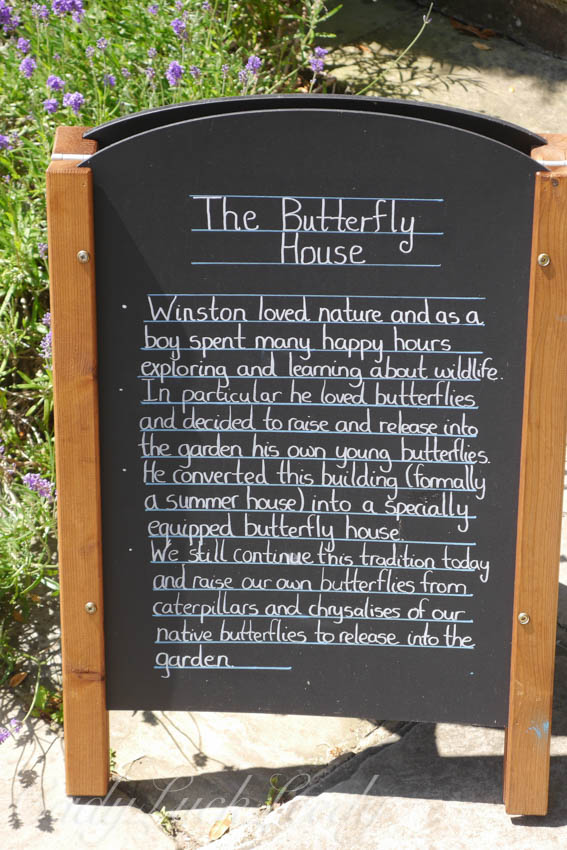 The Butterfly
House
Winston loved nature and as a
boy spent many happy hours
exploring and learning about wildlife.
In particular he loved butterflies
and decided to raise and release into
the garden his own young butterflies.
He converted this building (formally
a summer house) into a specially
equipped butterfly house.
We still continue this tradition today
and raise our own butterflies from
caterpillars and chrysalises of our
native butterflies to release into the
garden.